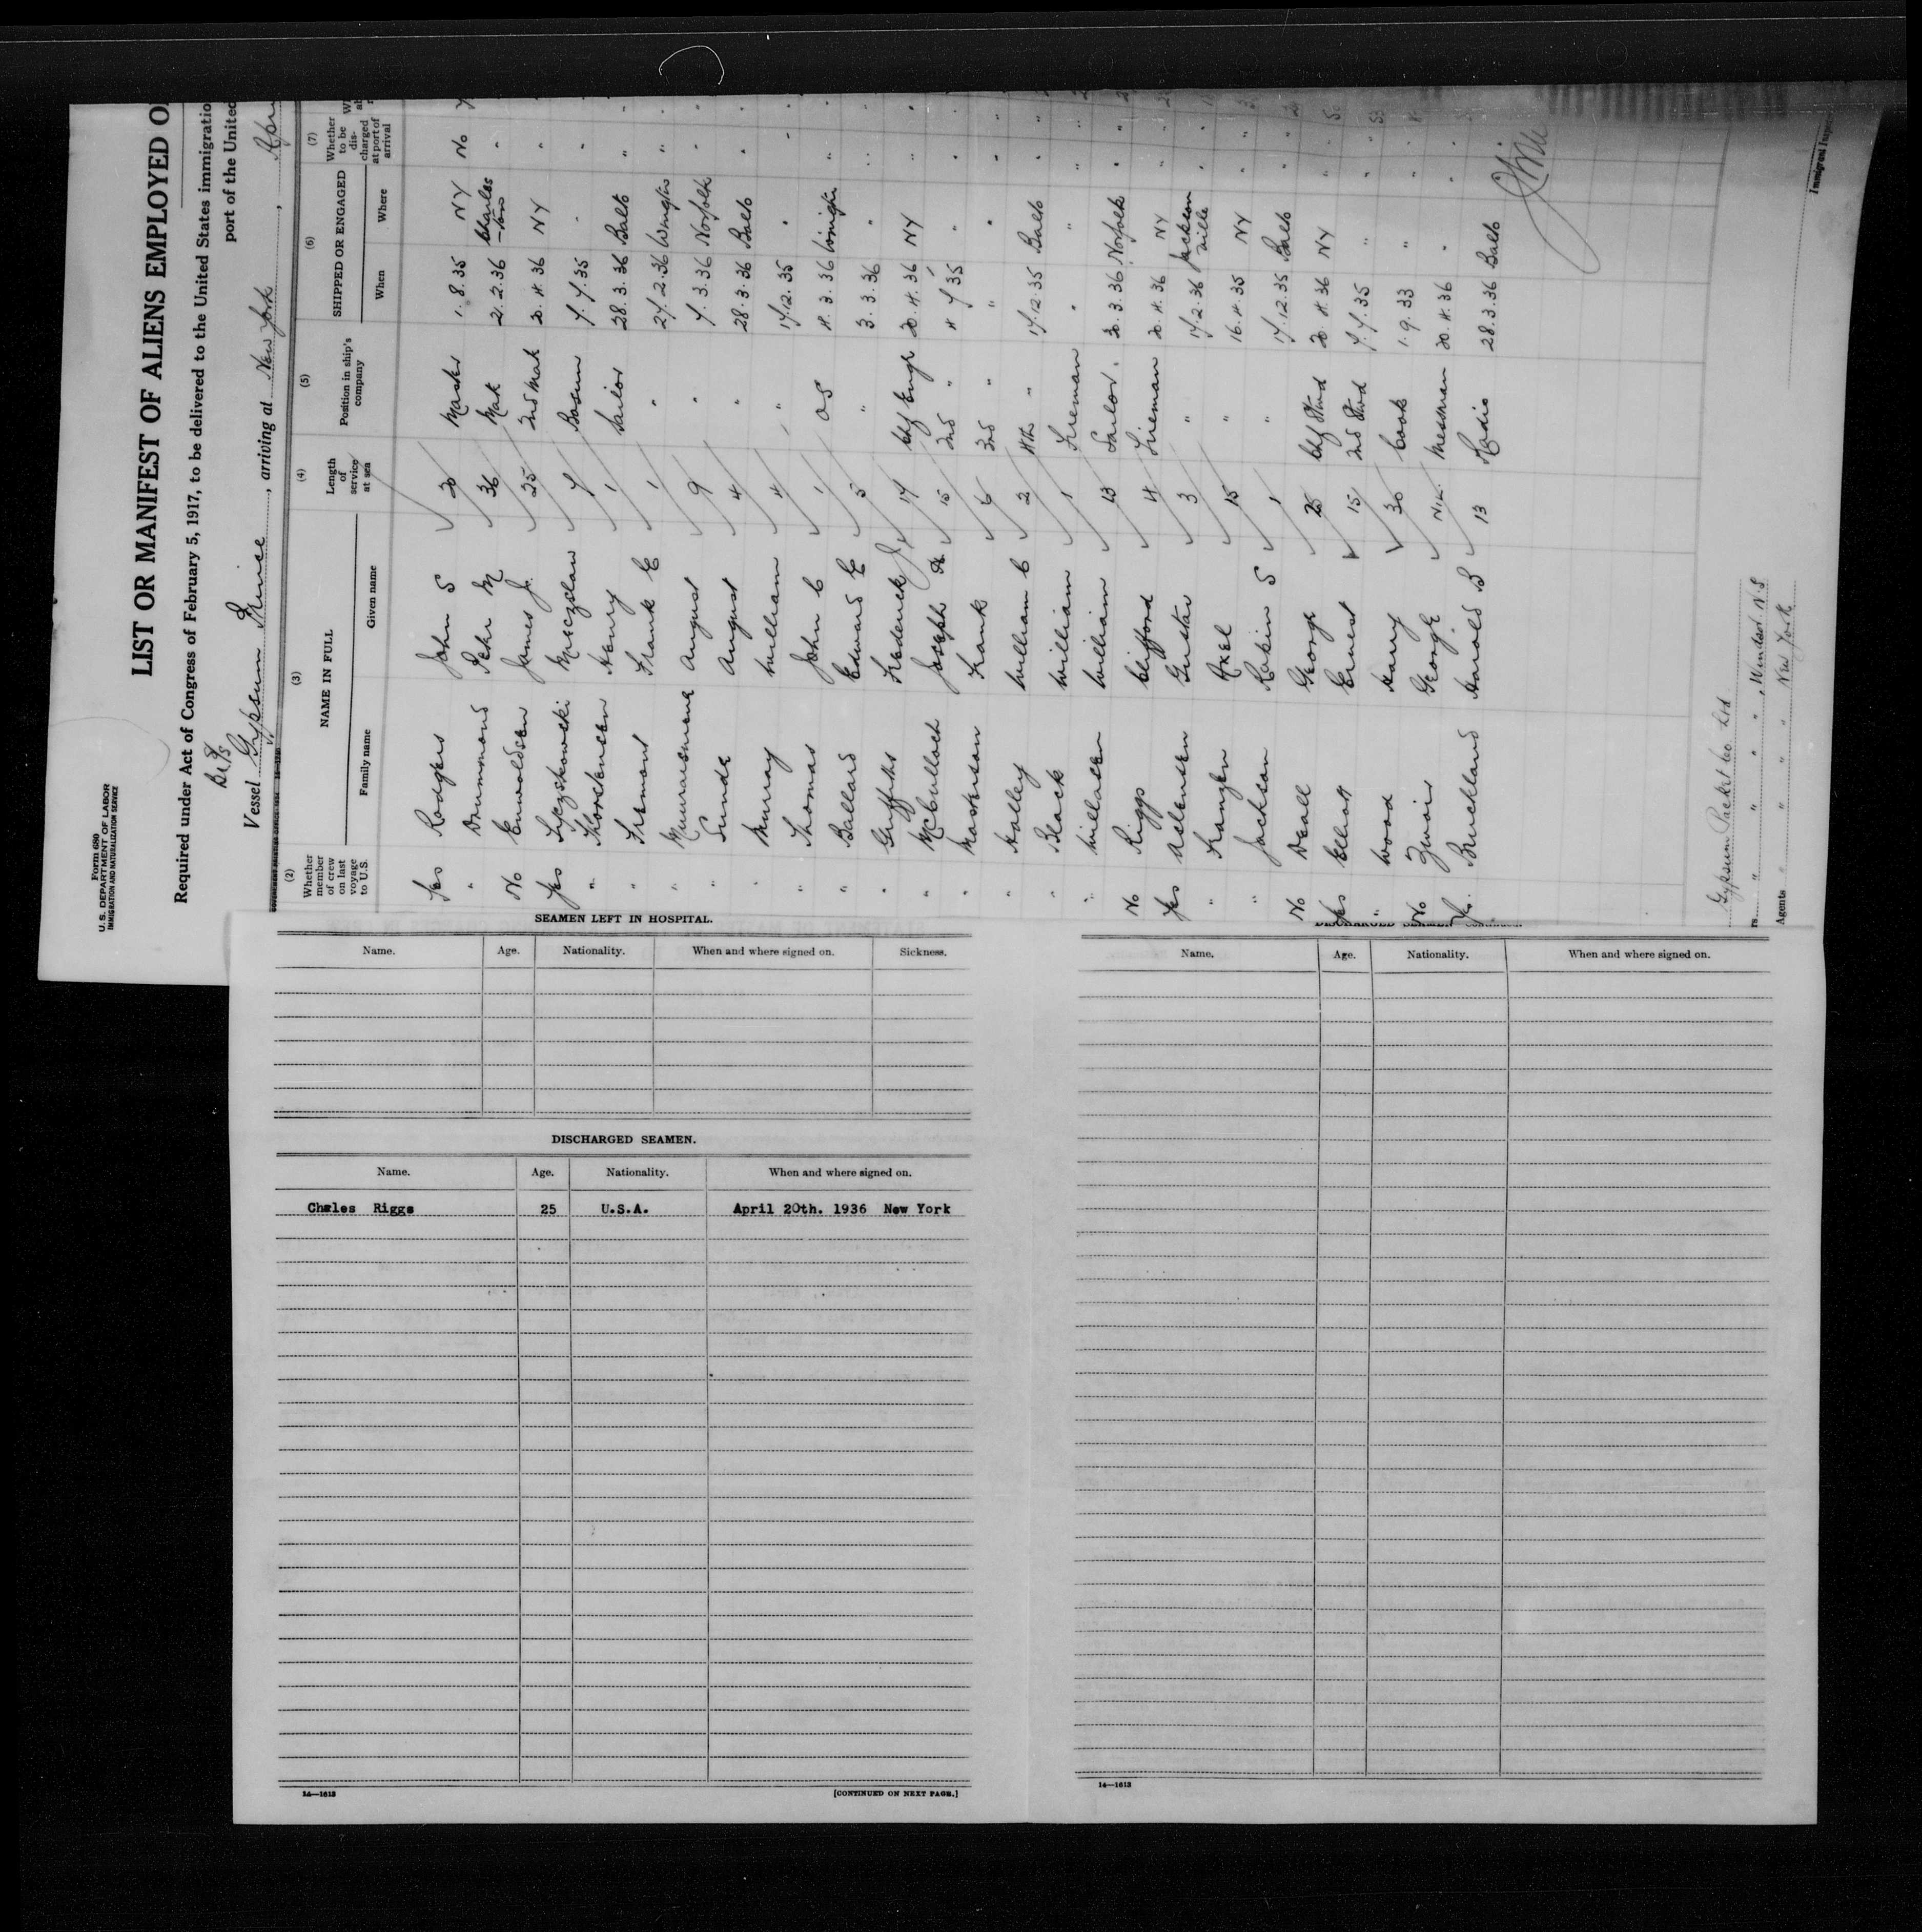 Form 680
U. S. DEPARTMENT OF LABOR
IMMIGRATION AND NATURALIZATION SERVICE
LIST OR MANIFEST OF ALIENS EMPLOYED O
Required under Act of Congress of February 5, 1917, to be delivered to the United States immigratio
port of the United
Vessel Gypsum Prince, arriving at New York,
(2) Whether member of crew on last voyage to U.S. (3) NAME IN FULL Family name Given name (4) Length of service at sea (5) Position in ship's company (6) SHIPPED OR ENGAGED When Where (7) Whether to be discharged at port of arrival
Yes Rodgers John S 20 Master 1.8.35 NY No
" Drummond Peter M 36 Mate 2.2.36 Charles-ton "
No Enwoldsen James J. 25 2nd Mate 20.4.36 NY "
Yes Mieczslaw 7 Bosun 7.7.35 "
" Thorstensen Henry 1 Sailor 28.3.36 Balto "
" Fremont Frank E 1 " 27.2.36 "
" August 9 " 7.3.36 Norfolk "
" Sunde August 4 " 28.3.36 Balto "
" Murray William 4 " 17.12.35 " "
" Thomas John C 1 OS 4.3.36 "
" Ballard Edward E 5 " 3.3.36 " "
" Griffiths Frederick J. 17 Chf Engr 20.4.36 NY "
" McCulloch Joseph 15 2nd " 4 7 35 " "
" Masterson Frank 6 3rd " " " "
" Halley William C 2 4th " 17.12.35 Balto "
" Black William 1 Fireman " " "
" William 13 Sailor. 30.3.36 Norfolk "
No Riggs Clifford 4 Fireman 20.4.36 NY "
Yes Adlensen Gustav 3 " 17.2.36 Jacksonville "
" Axel 15 " 16.4.35 NY "
" Jackson Robin S 1 " 17.12.35 Balto "
No Deall George 25 Chf Stwd 20.4.36 NY "
Yes Elliott Ernest 15 2nd Stwd 7.7.35 " "
" Wood Harry 30 Cook 1.9.33 " "
No Zwair George Nil. Messman 20.4.36 " "
Buckland Harold B 13 Radio 28.3.36 Balto
Gypsum Packet Co Ltd
" " " , Windsor N.S
Agents " " " " New York
Immigrant Inspec
SEAMEN LEFT IN HOSPITAL.
Name. Age. Nationality. When and where signed on. Sickness.
DISCHARGED SEAMEN.
Name. Age. Nationality. When and where signed on.
Chales Riggs 25 U.S.A. April 20th. 1936 New York
14—1613 [CONTINUED ON NEXT PAGE.]
DISCHARGED SEAMEN—Continued.
Name. Age. Nationality. When and where signed on.
14—1613